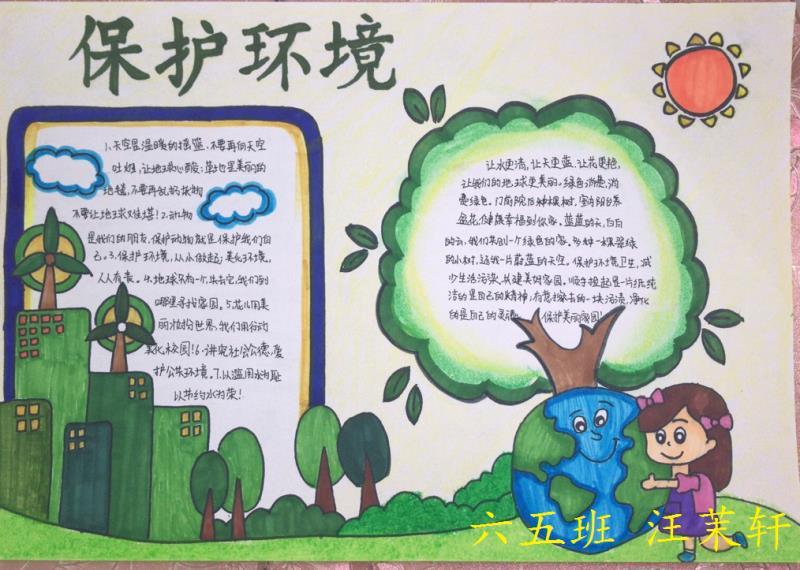 保护环境
1、天空是温暖的摇篮，不要再向天空
吐烟，让地球心酸；草地是美丽的
地毯，不要再乱扔废物
不要让地球难堪！2、动物
是我们的朋友，保护动物就是保护我们自
己。3、保护环境，从小做起；美化环境，
人人有责。4、地球只有一个，失去它，我们到
哪里寻找家园。5、花儿用美
丽妆扮世界，我们用行动
美化校园！6、讲究社会公德，爱
护公共环境。7、以滥用水为耻
以节约水为荣！
让水更清，让天更蓝，让花更艳，
让我们的地球更美丽。绿色消费，消
费绿色。门前院后种棵树，室内阳台养
盆花，健康幸福到你家。蓝蓝的天，白白
的云，我们共创一个绿色的家。多种一棵翠绿
的小树，还我一片蔚蓝的天空。保护环境卫生，减
少生活污染，共建美好家园。顺手捡起是一片纸，纯
洁的是自己的精神，有意擦去的一块污渍，净化
的是自己的灵魂。保护美丽家园！
六五班 汪茉轩